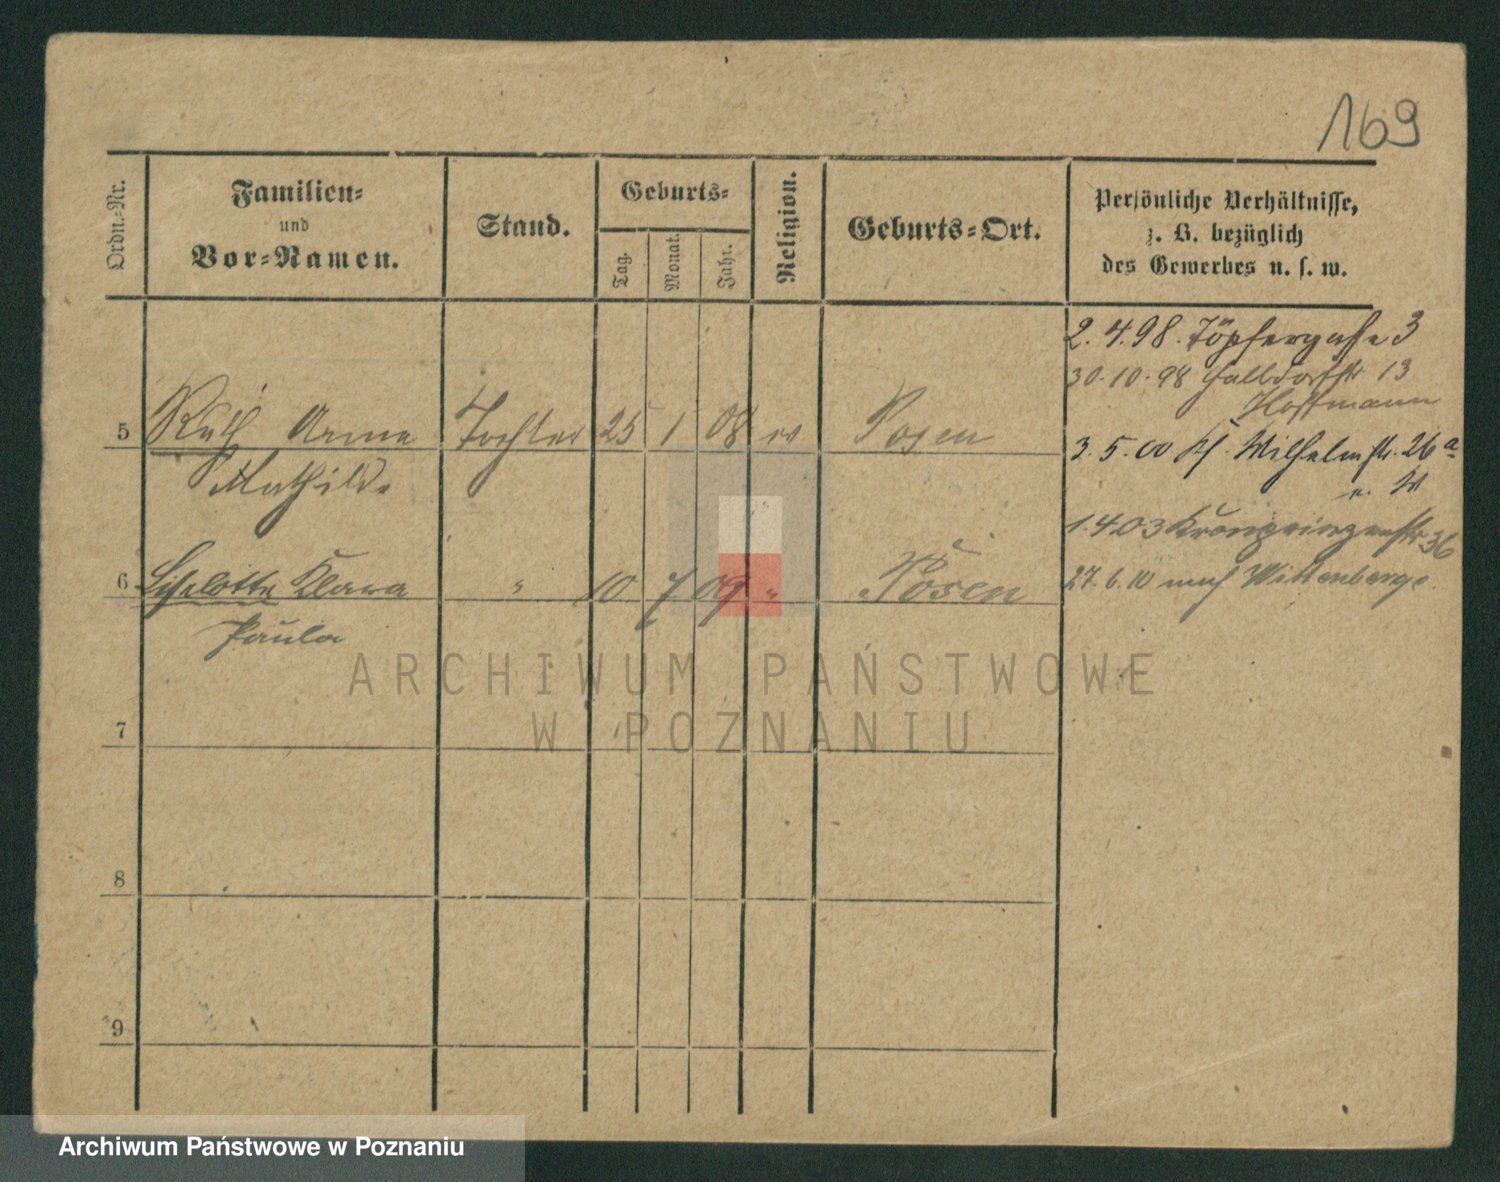 169
Ordn.-Nr.
Familien-
und
Vor-Namen.
Stand.
Geburts-
Tag.
Monat.
Jahr.
Religion.
Geburts-Ort.
Persönliche Verhältnisse,
z. B. bezüglich
des Gewerbes u. s. w.
2. 4. 98. Töpfergasse 3
30. 10. 98 13
Hoffmann
5 Ruth Anna Tochter 25 1 08 ev Posen
Mathilde
3. 5. 00 Wilhelmstr. 26a
1. 4 03 Kronprinzenstr 36
6 Liselotte Klara " 10 7 09 " Posen
Paula
27. 6. 10 nach Wittenberge
7
8
9
ARCHIWUM PAŃSTWOWE
W POZNANIU
Archiwum Państwowe w Poznaniu